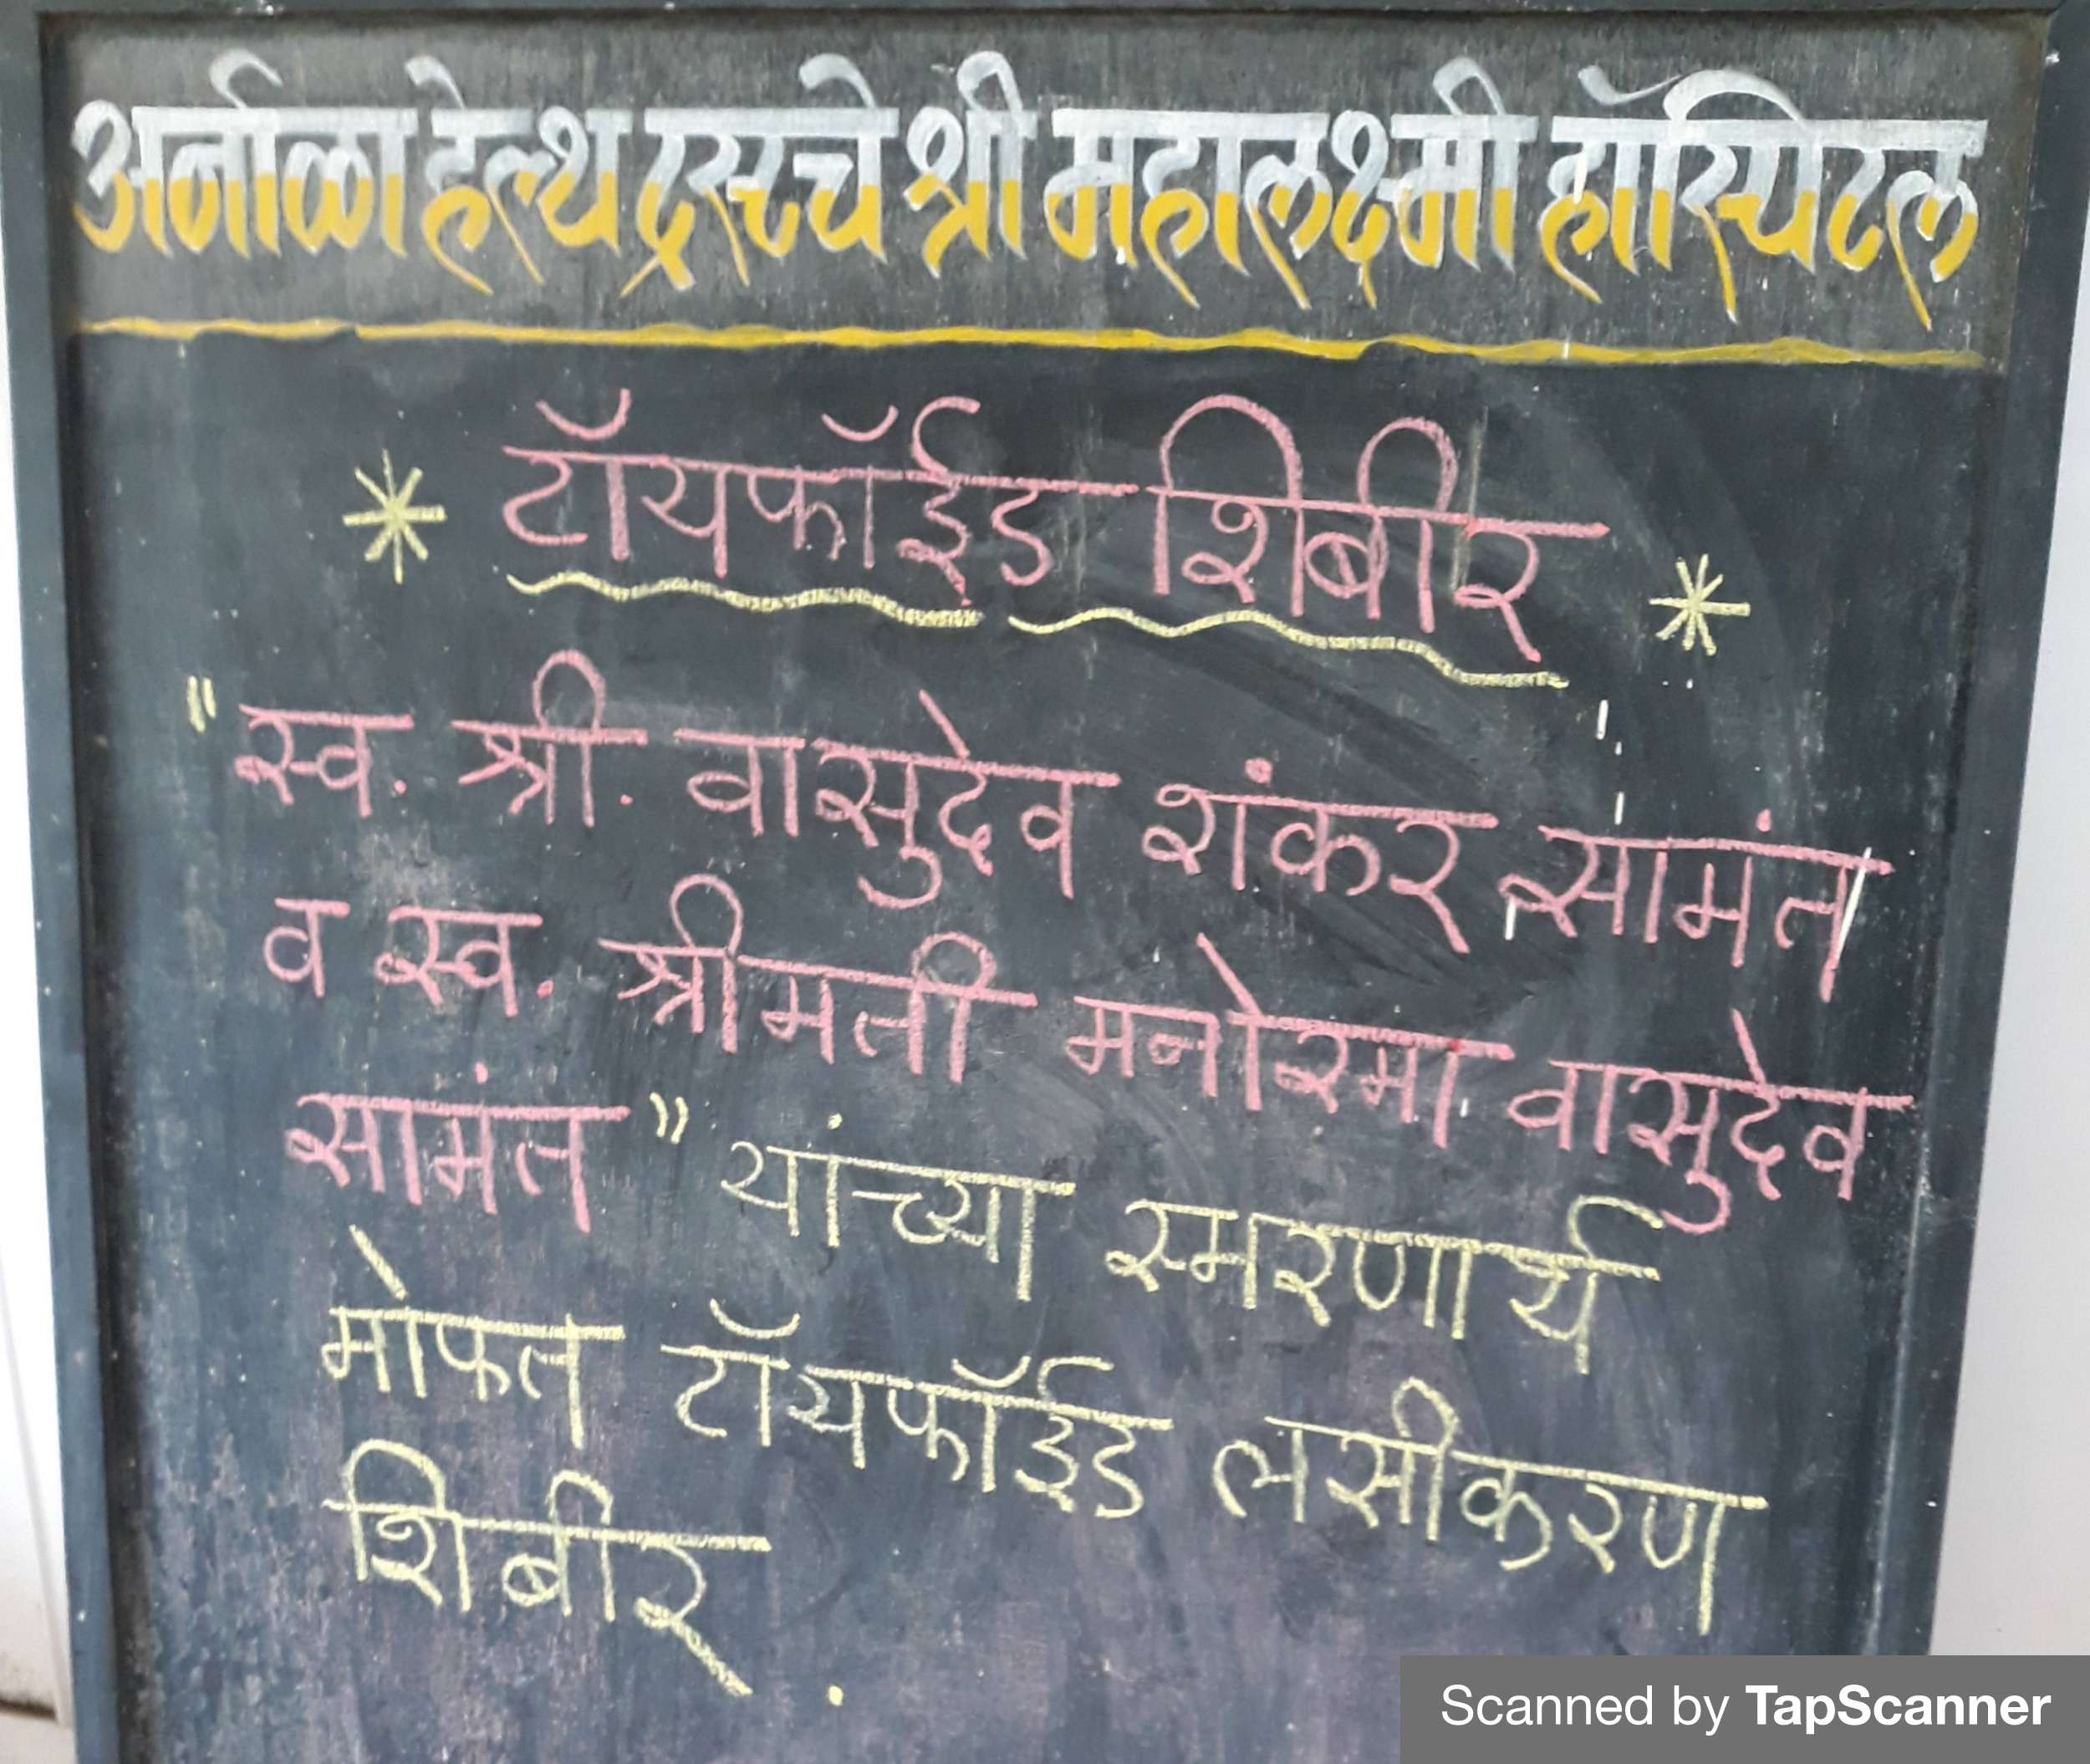 अर्नाळा हेल्थ ट्रस्टचे श्री महालक्ष्मी हॉस्पिटल
* टॉयफॉईड शिबीर *
"स्व. श्री. वासुदेव शंकर सामंत
व स्व. श्रीमती मनोरमा वासुदेव
सामंत" यांच्या स्मरणार्थ
मोफत टॉयफॉईड लसीकरण
शिबीर.
Scanned by TapScanner